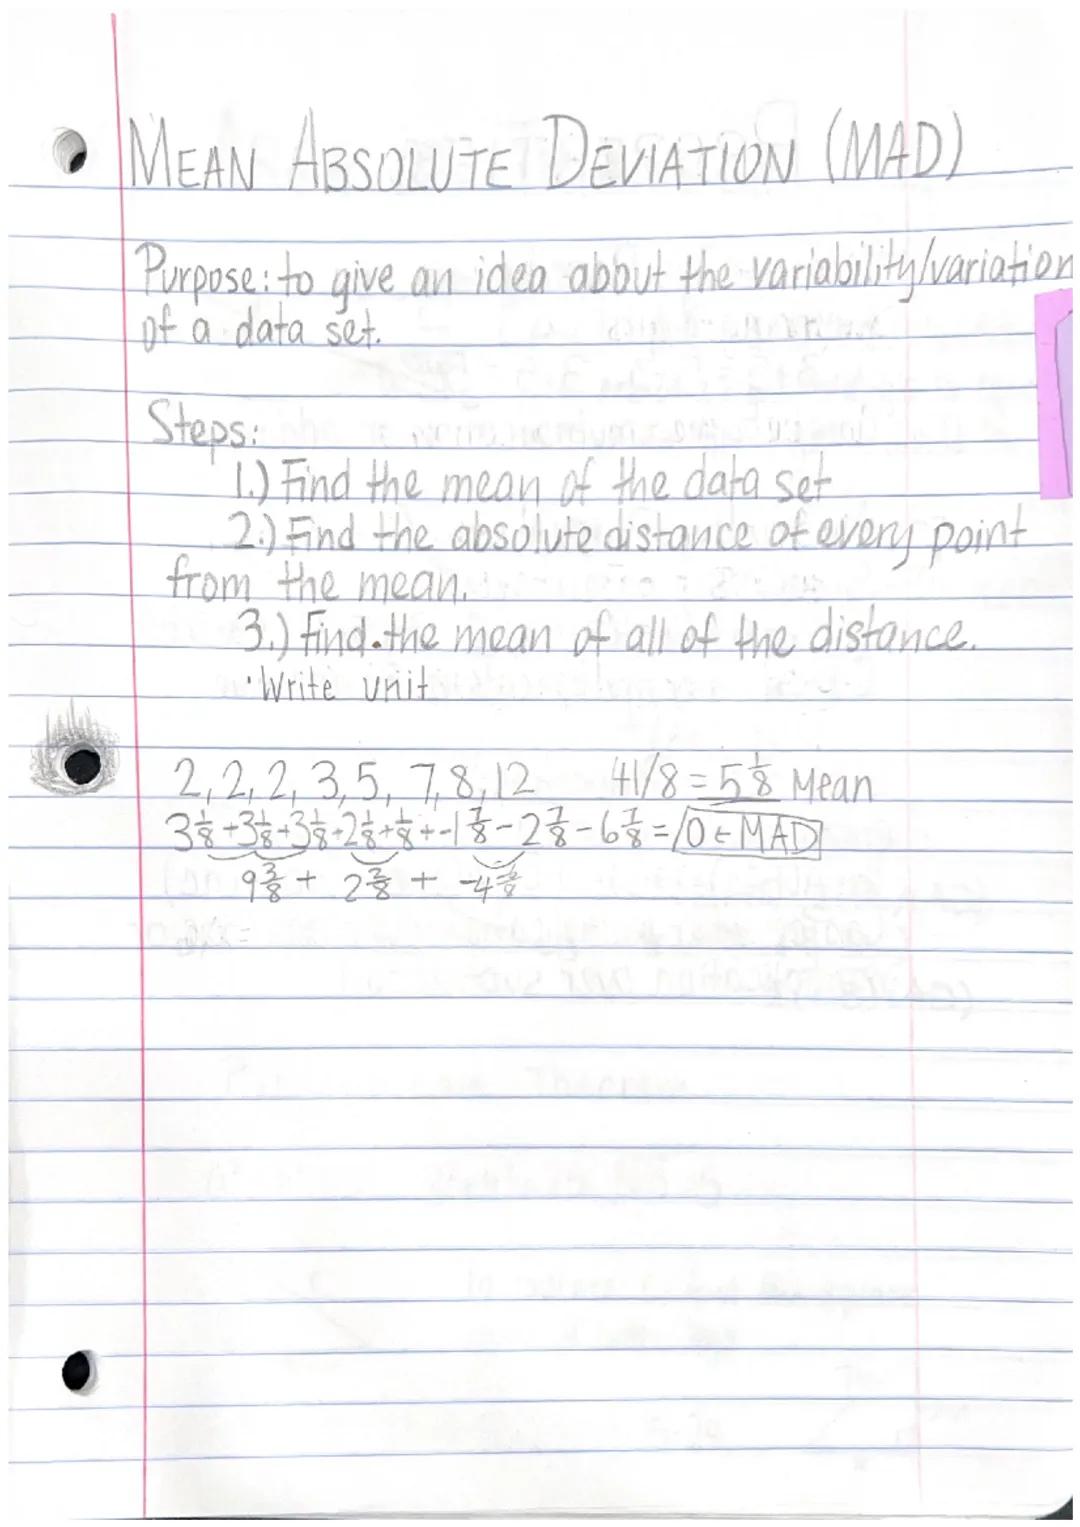 MEAN ABSOLUTE DEVIATION (MAD)
Purpose: to give an idea about the variability/variation
of a data set.
Steps:
1.) Find the mean of the data set
2.) Find the absolute distance of every point
from the mean.
3.) Find the mean of all of the distance.
·Write unit
2, 2, 2, 3, 5, 7, 8, 12 41/8 = 5 1/8 Mean
3 1/8 + 3 1/8 + 3 1/8 + 2 1/8 + 1/8 + -1 7/8 - 2 7/8 - 6 7/8 = 0 ← MAD
9 3/8 + 2 2/8 + -4 6/8